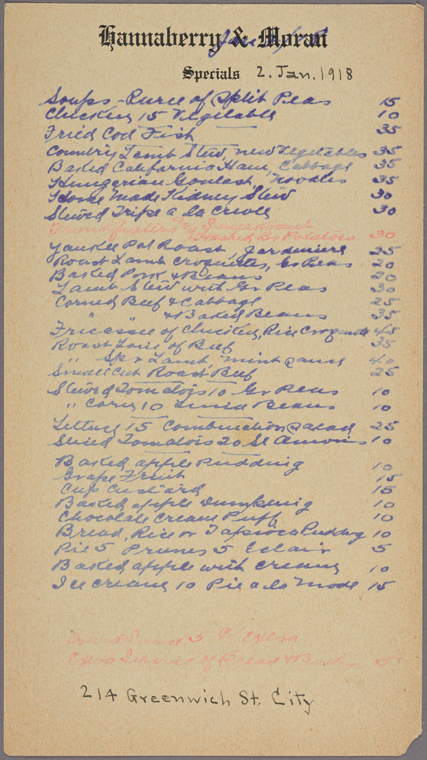 Hannaberry & Moran
Specials 2. Jan. 1918
Soups - Puree of Split Peas 15
Chicken 15 Vegetable 10
Fried Cod Fish 35
Country Lamb Stew new Vegetables 35
Baked California Ham Cabbage 35
Hungarian Goulash Noodles 35
Home Made Kidney Stew 30
Stewed Tripe a la Creole 30
Frankfurters & Sauerkraut
Mashed Potatoes 30
Yankee Pot Roast Jardeniere 25
Roast Lamb Croquettes, Gr Peas 20
Baked Pork & Beans 20
Lamb Stew with Gr Peas 30
Corned Beef & Cabbage 25
" " & Baked Beans 35
Fricassee of Chicken, Rice Croquette 45
Roast Loin of Beef 35
" Sp'g Lamb mint sauce 40
Small Cut Roast Beef 25
Stewed Tomatoes 10 Gr Peas 10
" Corn 10 Lima Beans 10
Lettuce 15 Combination Salad 25
Sliced Tomatoes 20 10
Baked apple Pudding 10
Grape Fruit 15
Cup Custard 15
Baked apple Dumpling 10
Chocolate Cream Puff 10
Bread, Rice or Tapioca Pudding 10
Pie 5 Prunes 5 Eclair 5
Baked apple with cream 10
Ice cream 10 Pie a la Mode 15
5 ¢ Extra
Extra Service of Bread & Butter 5
214 Greenwich St. City